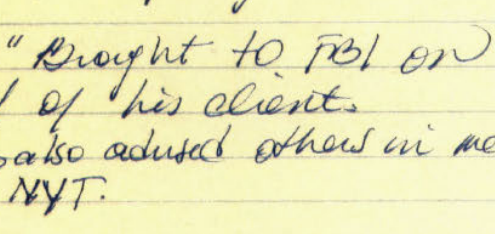 "Brought to FBI on
of his client.
also advised others in me
NYT.